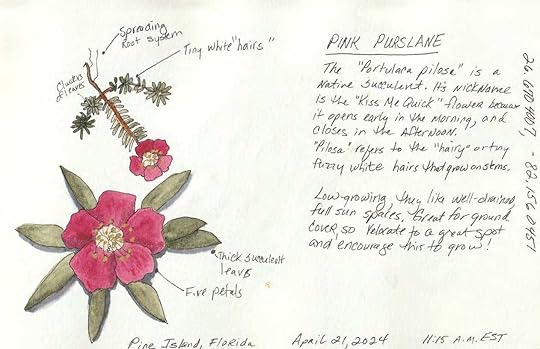 Spreading
Root System
Tiny white "hairs"
Clusters
of leaves
Thick succulent
leaves
Five petals
PINK PURSLANE
The "Portulaca pilosa" is a
Native Succulent. It's Nickname
is the "Kiss Me Quick" flower because
it opens early in the morning, and
closes in the Afternoon.
"Pilosa" refers to the "hairy" or tiny
fuzzy white hairs that grow on stems.
Low-growing, they like well-drained,
full sun spaces. Great for ground
cover, so relocate to a great spot
and encourage this to grow!
Pine Island, Florida
April 21, 2024
11:15 A.M. EST